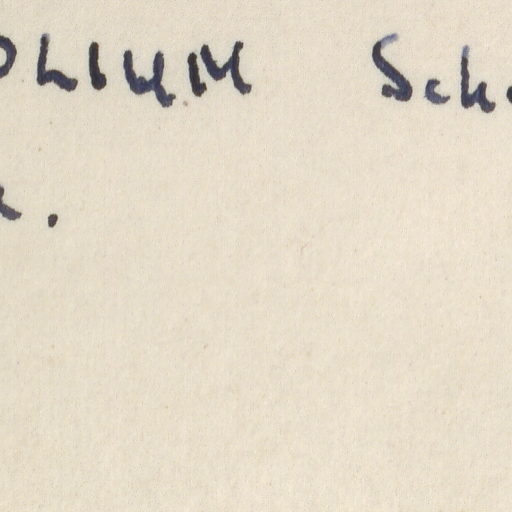 OLIUM Sch
.